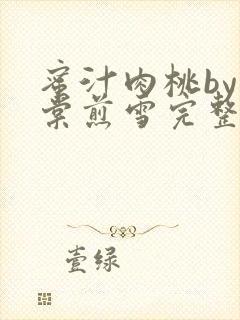 蜜汁肉桃by
棠煎雪完整
壹绿